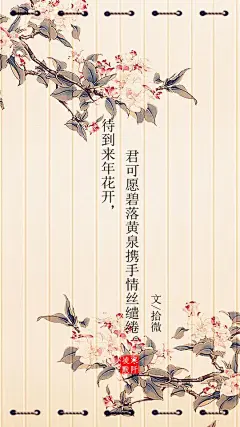 待到来年花开，
君可愿碧落黄泉携手情丝缱绻。
文/拾微